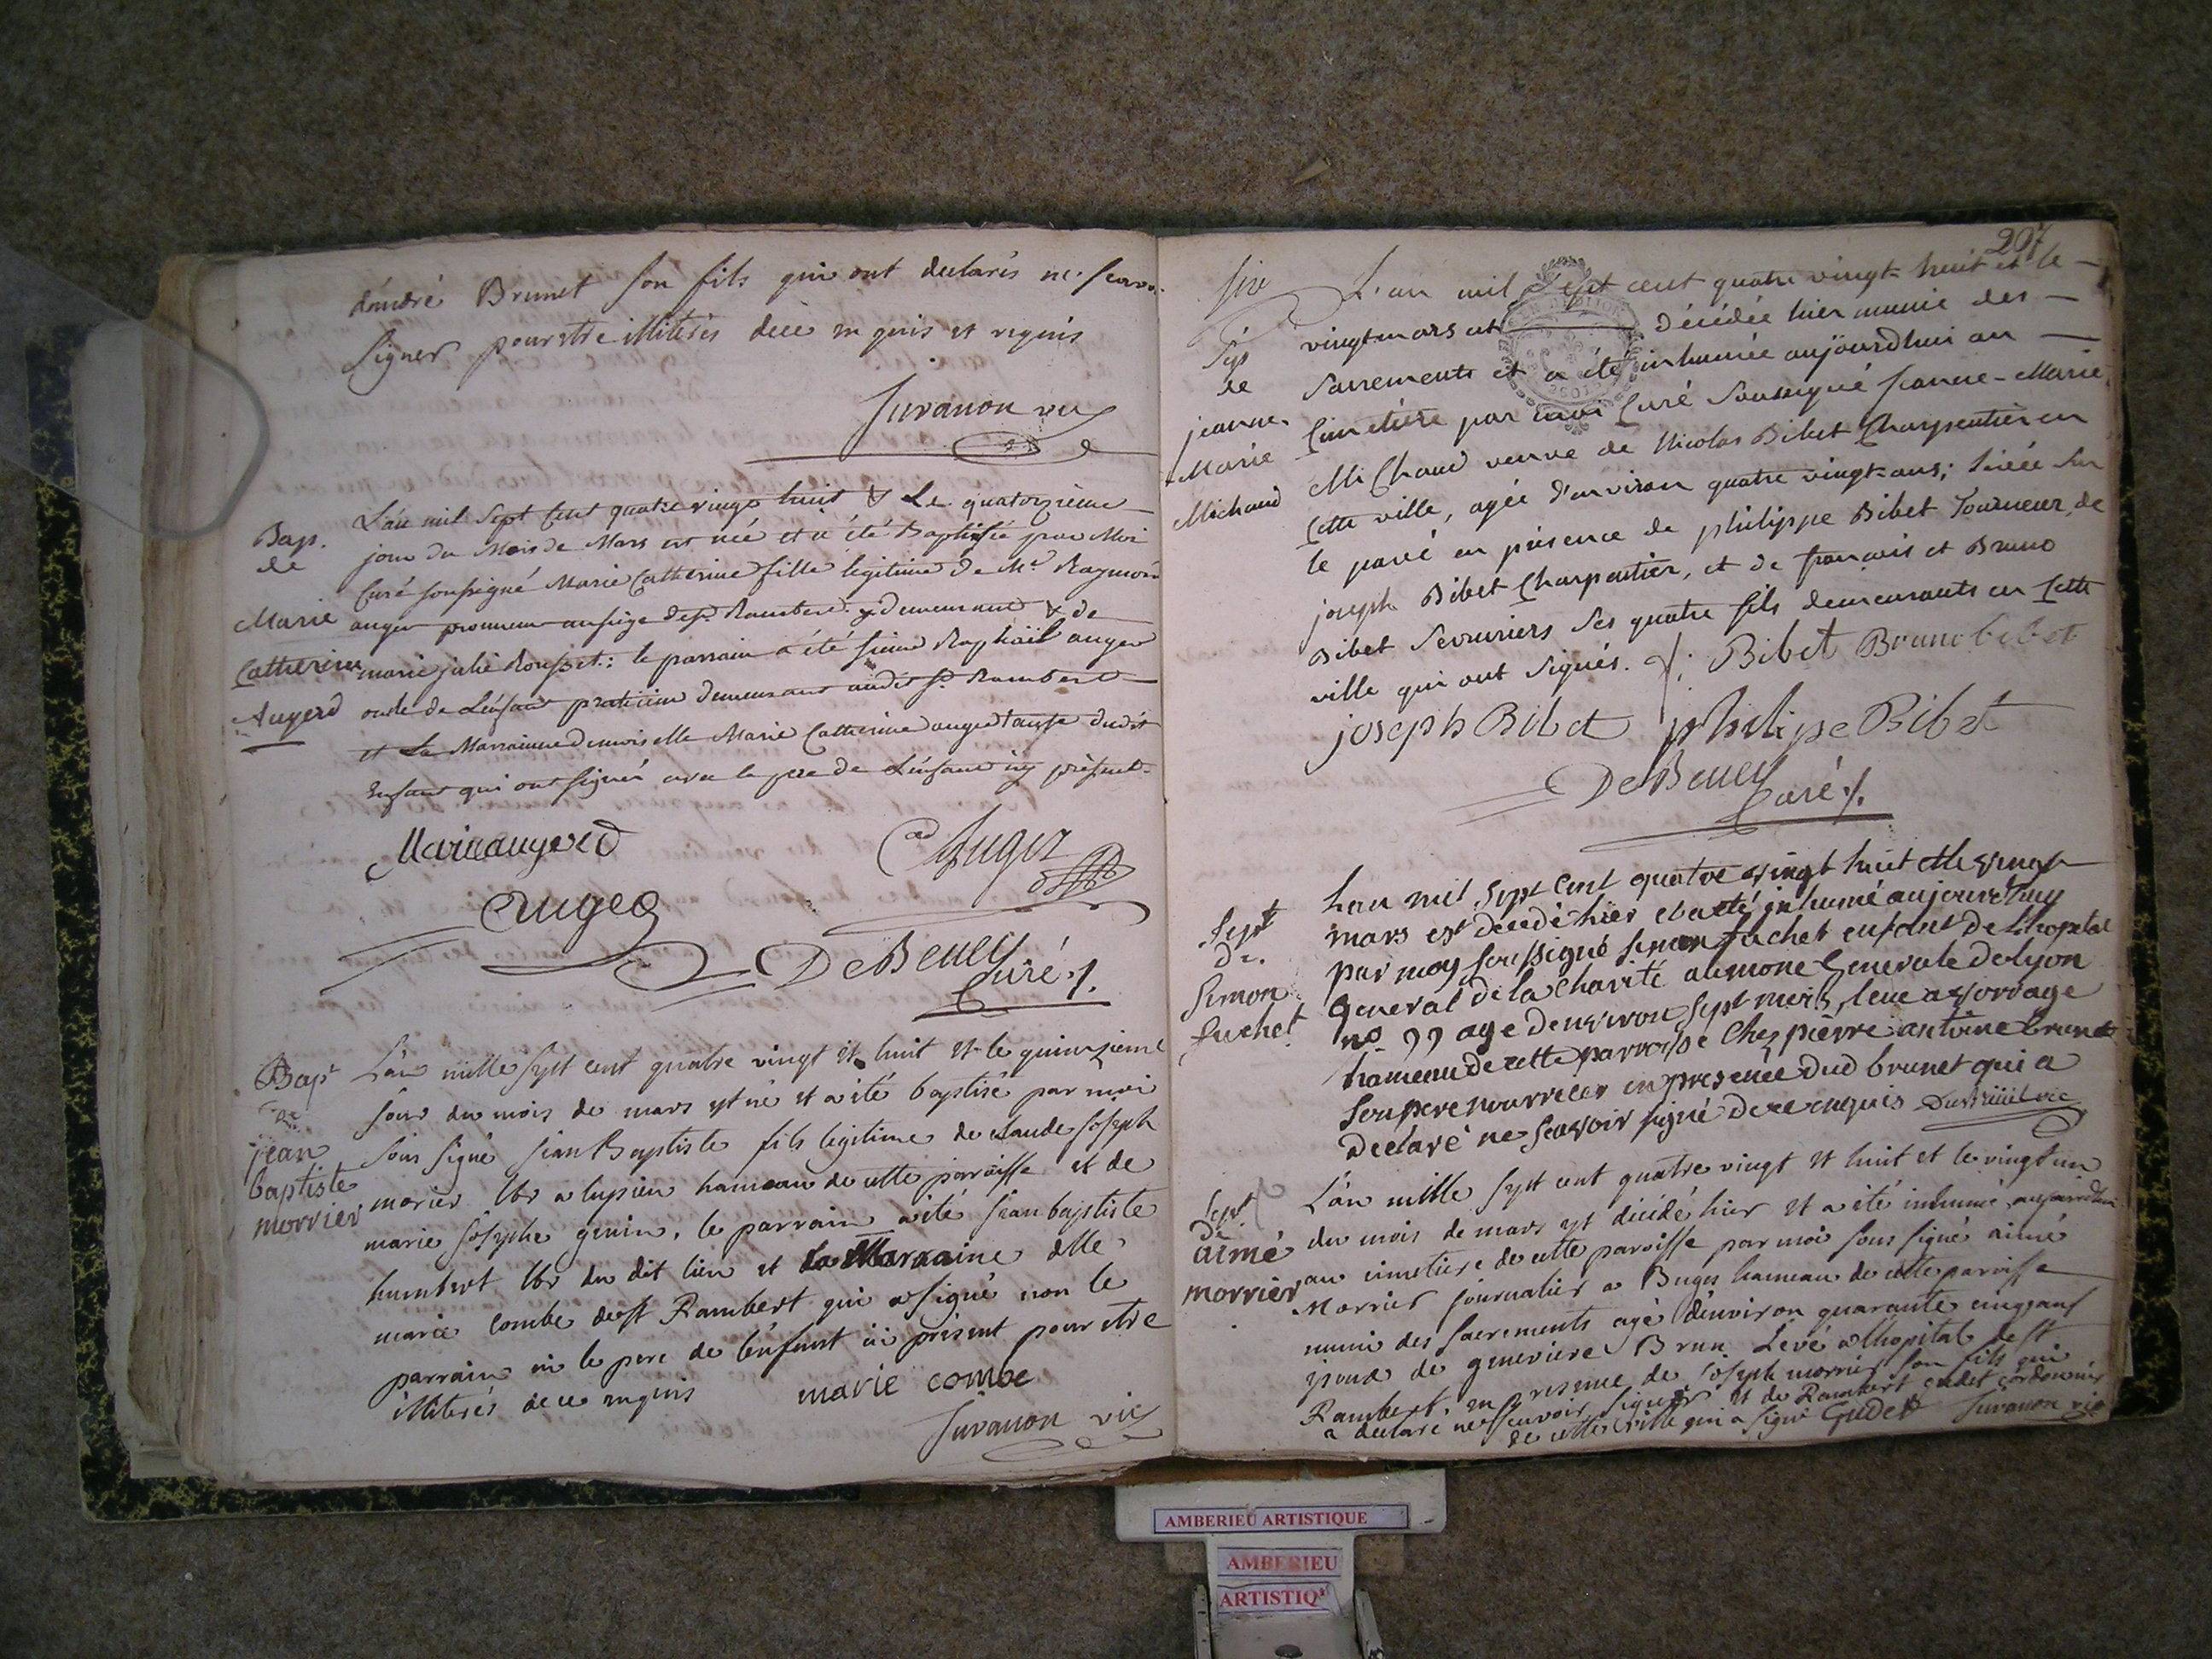 d'andré Brunet son fils qui ont declarés ne scavoir
signer pour etre illiterés de ce enquis et requis
Juvanon vic
Bap.
de
Marie
Catherine
Augerd
L'an mil sept Cent quatre vingt huit & Le quatorzième
jour du Mois de Mars est née et a été Baptisée par Moi
Curé soussigné Marie Catherine fille legitime de Mr Raymond
auger procureur au siège de st Rambert y demeurant & de
marie julie Rousset: le parrain a été Raphaël auger
oncle de L'enfant praticien demeurant audit st Rambert
et La Marrainne demoiselle Marie Catherine auger tante dudit
Enfant qui ont signés avec le pere de L'enfant icy présent.
Marie augerd
Auger
auger
De Beuey
Curé ./.
Bapt
de
jean
baptiste
morrier
L'an mille sept cent quatre vingt et huit et le quinzieme
jour du mois de mars est né et a été baptisé par moi
sous signé jean Baptiste fils legitime de claude joseph
morier lbr a lupieu hameau de cette paroisse et de
marie josephe genin, le parrain a été jean baptiste
humbert lbr du dit lieu et La Marraine dlle
marie combe de st Rambert qui a signé non le
parrain ni le pere de l'enfant ici présent pour etre
illiterés de ce enquis marie combe
Juvanon vic
207
Sep
de
jeanne
Marie
Michaud
L'an mil sept cent quatre vingt-huit et le
vingt mars est décédée hier munie des
Sacrements et a été inhumée aujourdhui au
Cimetière par moi Curé Soussigné Jeanne-Marie
Michaud veuve de Nicolas Bibet Charpentier en
Cette ville, agée d'environ quatre vingt-ans; livée sur
le pavé en présence de philippe Bibet Tourneur, de
joseph Bibet Charpentier, et de françois et Bruno
Bibet Serruriers ses quatre fils demeurants en Cette
ville qui ont signés. f: Bibet Bruno bibet
joseph Bibet philipe Bibet
De Beuey
Curé ./.
Sept
de
Simon
fuchet
Lan mil sept Cent quatre vingt huit et le vingt
mars est decedé hier et a eté inhumé aujourdhuy
par moy soussigné simon fuchet enfant de Lhopital
general de la Charité aumone Generale de Lyon
no 99 age denviron sept mois, leve a vorage
hameau de cette parroisse Chez pierre antoine brunet
son pere nourricier en presence dud brunet qui a
declaré ne scavoir signé de ce enquis Dutreüil vic
Sept
de
aimé
morrier
L'an mille sept cent quatre vingt et huit et le vingt un
du mois de mars est décidé hier et a été inhumé aujourdhui
au cimetiere de cette paroisse par moi sous signé aimé
Morrier journalier a Buges hameau de cette paroisse
muni des sacrements agé d'environ quarante cinq ans
epoux de genevieve Brun Levé a l'hopital de st
Rambert, en presence de joseph morrier son fils qui
a declaré ne scavoir signer et de Rambert cudet cordonnier
de cette ville qui a signé Cudet Juvanon vic
AMBERIEU ARTISTIQUE
AMBERIEU
ARTISTIQ